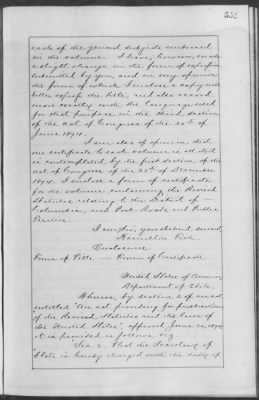 each of the general subjects embraced
in the volume. I have, however, made
a slight change in the form of
submitted by you, and in my opinion
the form of which I enclose a copy will
better the title, and also accord
more exactly with the language used
for that purpose in the third section
of the act of Congress of the 20th of
June 1874.
I am also of opinion that
one certificate to each volume is all that
is contemplated by the first section of the
act of Congress of the 28th of December
1874. I enclose a form of certificate
for the volume containing the Revised
Statutes relating to the District of
Columbia, and Post Roads and Public
Treaties.
I am Sir, your obedient servant,
Hamilton Fish
Enclosure
Form of Title — Form of Certificate
United States of America,
Department of State.
Whereas, by section 2 of an act
entitled "An act providing for publication
of the Revised Statutes and the laws of
the United States", approved June 20, 1874
it is provided as follows, viz:
"Sec. 2. That the Secretary of
State is hereby charged with the duty of